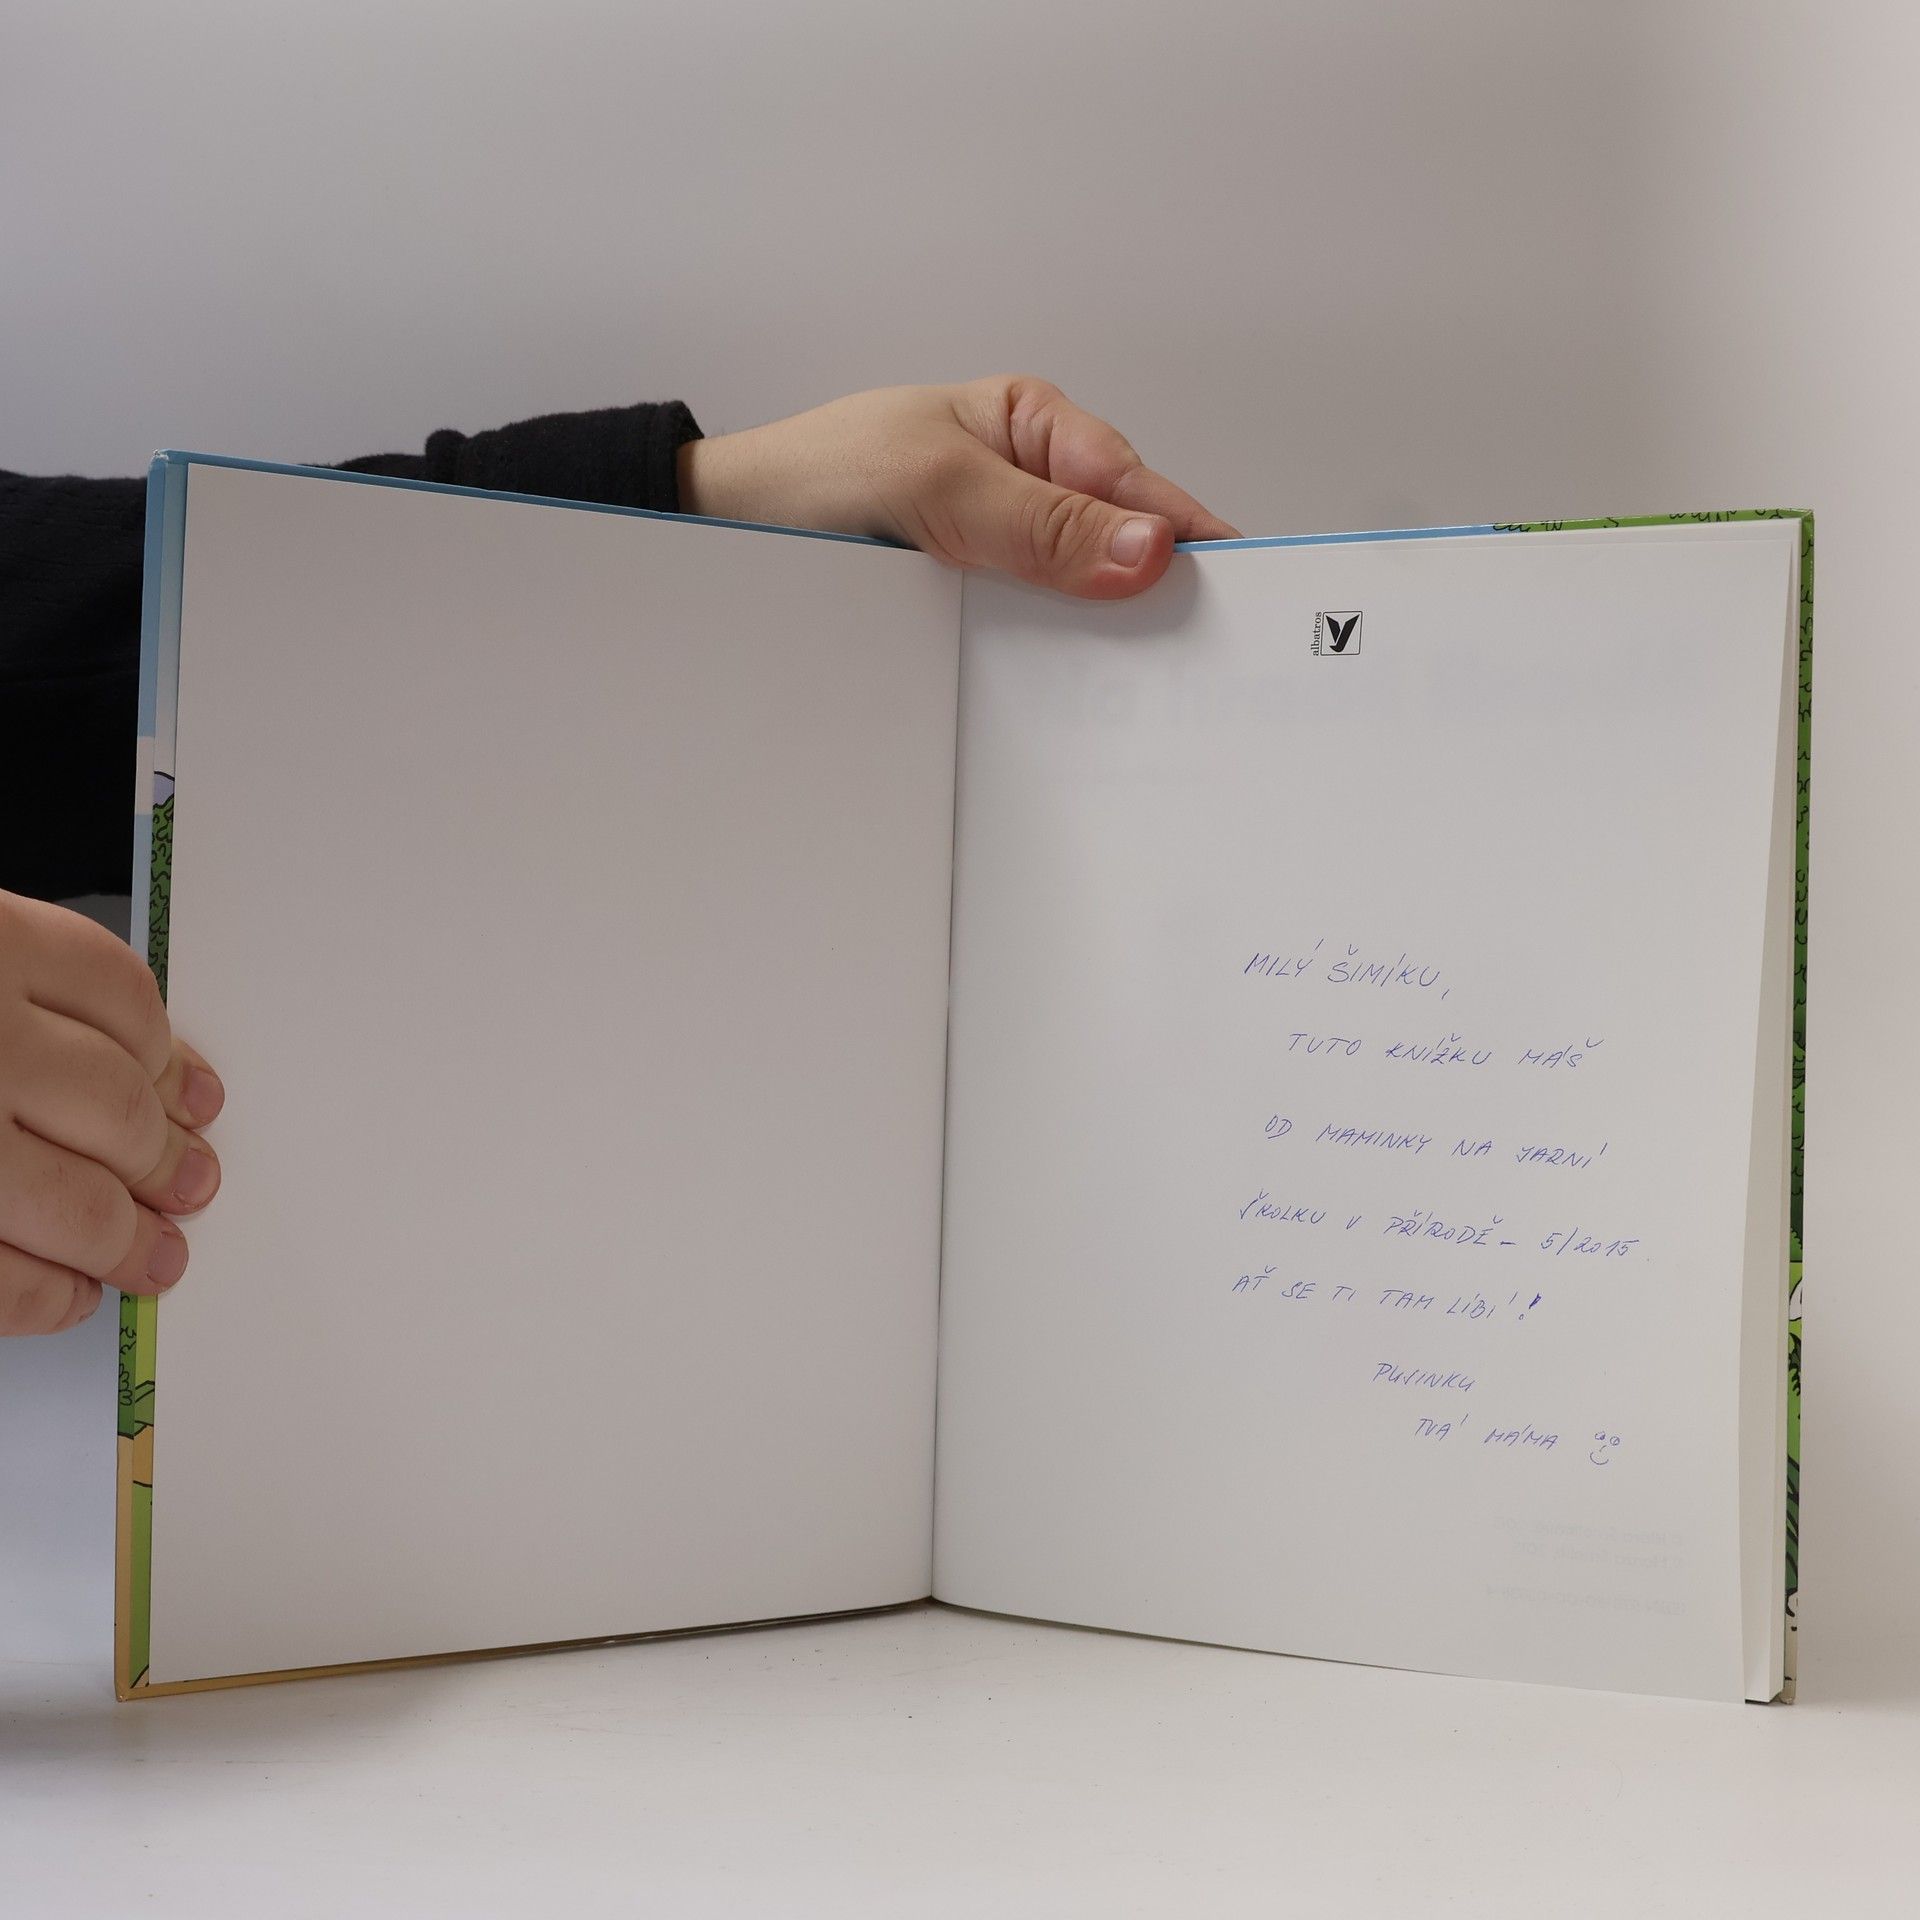 albatros
MILÝ ŠIMÍKU,
TUTO KNÍŽKU MÁŠ
OD MAMINKY NA JARNÍ
ŠKOLKU V PŘÍRODĚ - 5/2015.
AŤ SE TI TAM LÍBÍ!
PUSINKU
TVÁ MÁMA